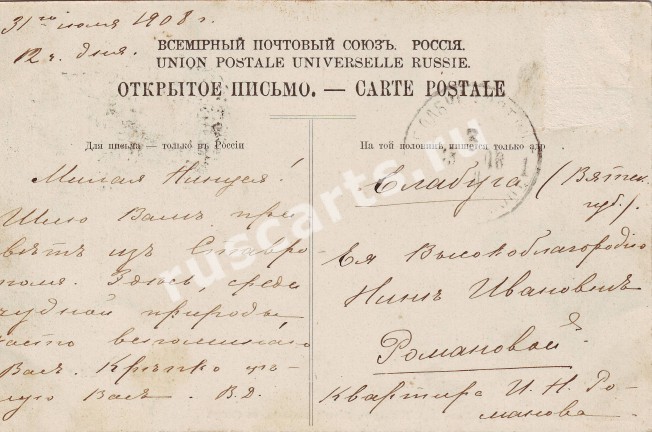 31го июля 1908 г.
12 ч. дня.
ВСЕМІРНЫЙ ПОЧТОВЫЙ СОЮЗЪ. РОССІЯ.
UNION POSTALE UNIVERSELLE RUSSIE.
ОТКРЫТОЕ ПИСЬМО. — CARTE POSTALE
Для письма — только въ Россіи
Милая Нинуся!
Шлю Вамъ при
вѣтъ изъ Ставро
поля. Здѣсь, среди
чудной природы
часто вспоминаю
Васъ. Крѣпко цѣ-
лую Васъ. В.Д.
На той половинѣ пишется только адр
Елабуга (Вятск.
губ.).
Ея Высокоблагородію
Нинѣ Ивановнѣ
Романовой
Квартира И. Н. Ро-
манова.
ruscarts.ru